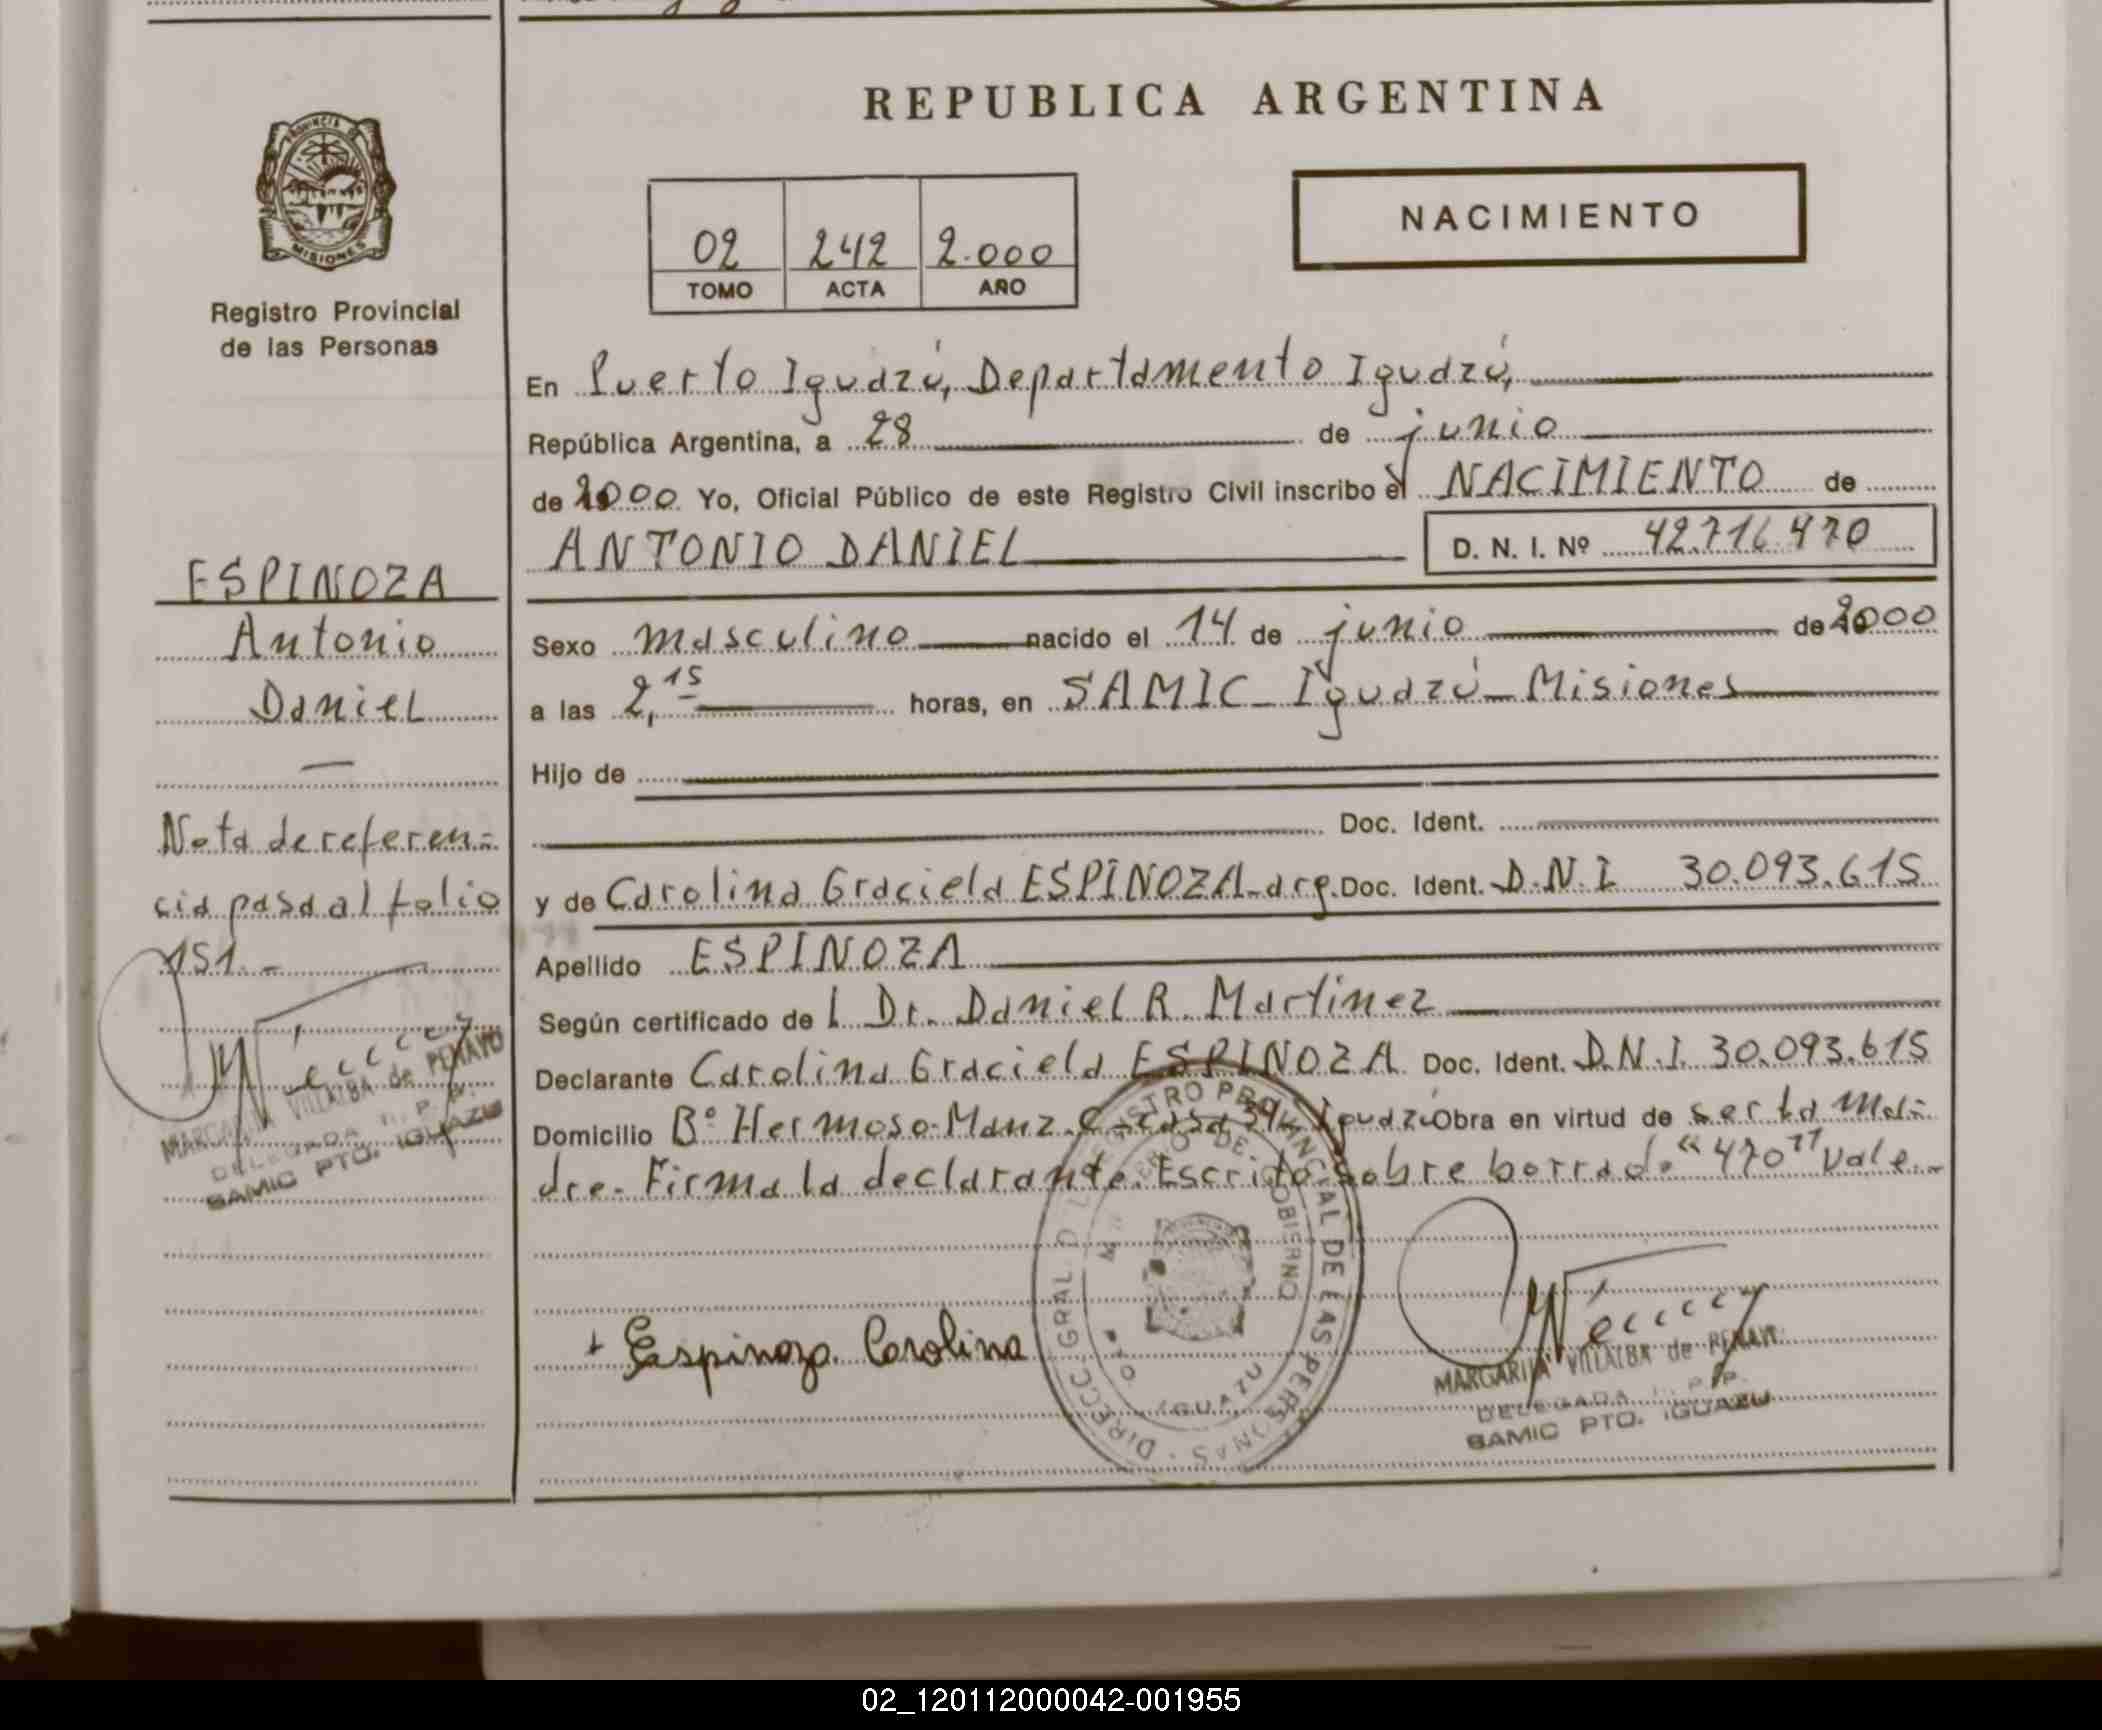 REPUBLICA ARGENTINA
PROVINCIA DE
MISIONES
Registro Provincial
de las Personas
NACIMIENTO
02 242 2.000
TOMO ACTA AÑO
En Puerto Iguazú, Departamento Iguazú,
República Argentina, a 28 de junio
de 2000 Yo, Oficial Público de este Registro Civil inscribo el NACIMIENTO de
ANTONIO DANIEL D. N. I. Nº 42.716.470
Sexo masculino nacido el 14 de junio de 2000
a las 2,15 horas, en SAMIC - Iguazú - Misiones
Hijo de
Doc. Ident.
y de Carolina Graciela ESPINOZA - arg. Doc. Ident. D.N.I. 30.093.615
Apellido ESPINOZA
Según certificado de l Dr. Daniel R. Martinez
Declarante Carolina Graciela ESPINOZA Doc. Ident. D.N.I. 30.093.615
Domicilio Bº Hermoso - Manz. C - casa Iguazú Obra en virtud de ser la ma-
dre. Firma la declarante. Escrito sobre borrado "470" Vale.-
ESPINOZA
Antonio
Daniel
Nota de referen-
cia pasa al folio
151.-
MARGARITA VILLALBA de PENAYO
DELEGADA R. P. P.
SAMIC PTO. IGUAZU
Espinoza Carolina
DIRECC GRAL D REGISTRO PROVINCIAL DE LAS PERSONAS
MINISTERIO DE GOBIERNO
PTO. IGUAZU
MARGARITA VILLALBA de PENAYO
DELEGADA R. P. P.
SAMIC PTO. IGUAZU
02_120112000042-001955